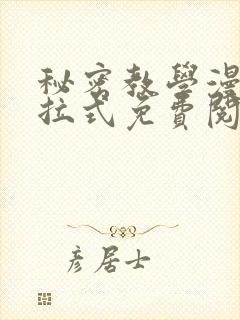 秘密教學漫
拉式免費閱
彦居士